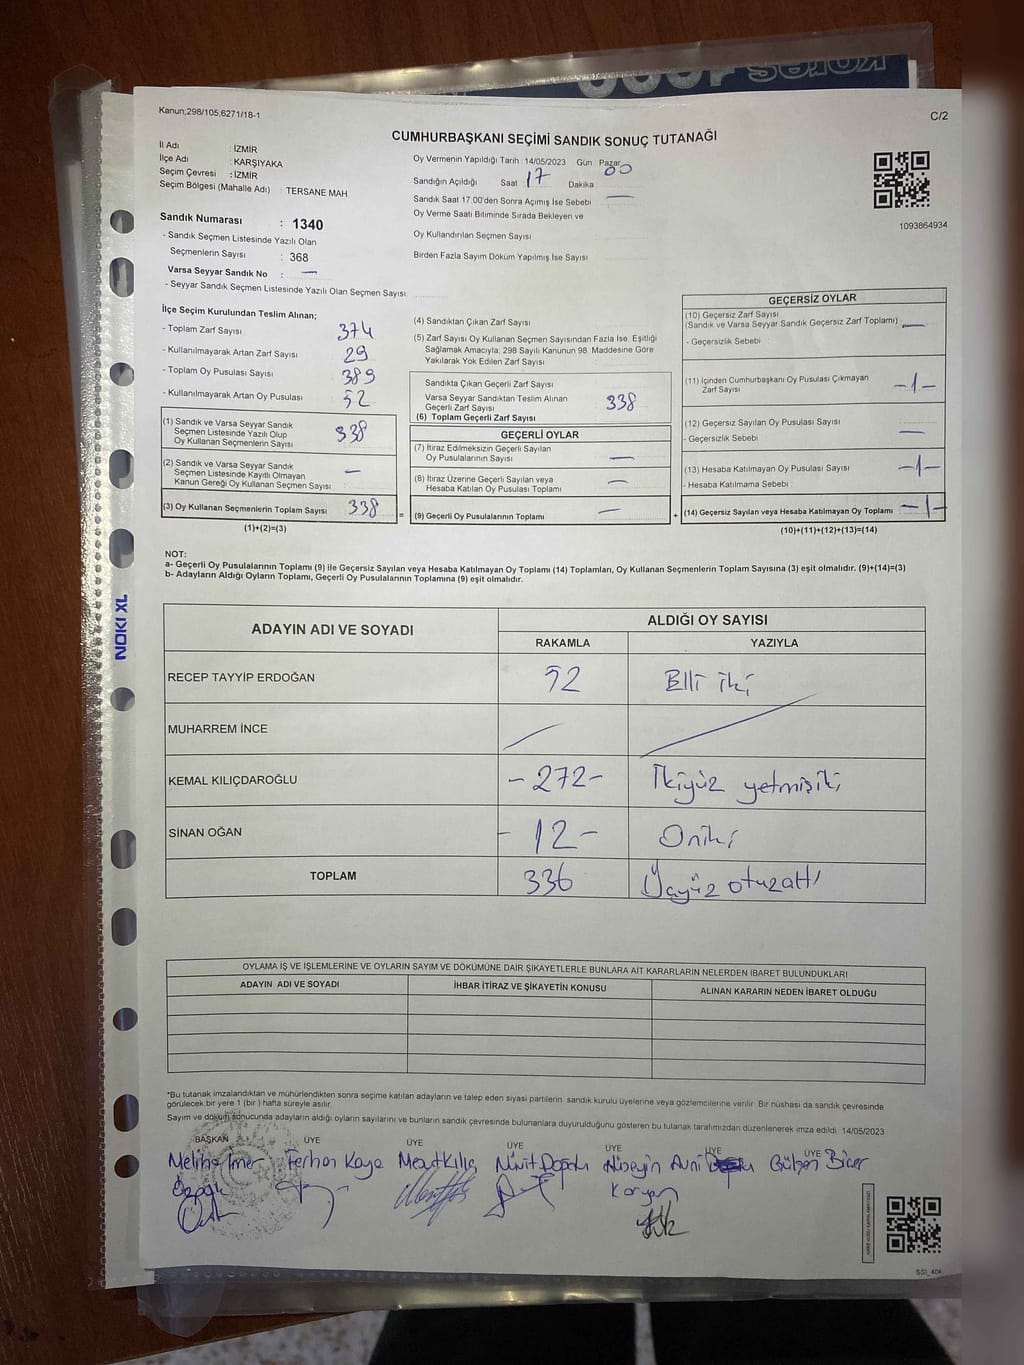 Kanun;298/105,6271/18-1
C/2
CUMHURBAŞKANI SEÇİMİ SANDIK SONUÇ TUTANAĞI
İl Adı : İZMİR
İlçe Adı : KARŞIYAKA
Seçim Çevresi : İZMİR
Seçim Bölgesi (Mahalle Adı) : TERSANE MAH.
Sandık Numarası : 1340
- Sandık Seçmen Listesinde Yazılı Olan
Seçmenlerin Sayısı : 368
Varsa Seyyar Sandık No : —
- Seyyar Sandık Seçmen Listesinde Yazılı Olan Seçmen Sayısı:
Oy Vermenin Yapıldığı Tarih : 14/05/2023 Gün Pazar
Sandığın Açıldığı Saat 17 Dakika 00
Sandık Saat 17:00'den Sonra Açımış İse Sebebi —
Oy Verme Saati Bitiminde Sırada Bekleyen ve
Oy Kullandırılan Seçmen Sayısı
Birden Fazla Sayım Döküm Yapılmış İse Sayısı
1093864934
İlçe Seçim Kurulundan Teslim Alınan;
- Toplam Zarf Sayısı 374
- Kullanılmayarak Artan Zarf Sayısı 29
- Toplam Oy Pusulası Sayısı 389
- Kullanılmayarak Artan Oy Pusulası 52
(1) Sandık ve Varsa Seyyar Sandık
Seçmen Listesinde Yazılı Olup
Oy Kullanan Seçmenlerin Sayısı 338
(2) Sandık ve Varsa Seyyar Sandık
Seçmen Listesinde Kayıtlı Olmayan
Kanun Gereği Oy Kullanan Seçmen Sayısı —
(3) Oy Kullanan Seçmenlerin Toplam Sayısı 338
(1)+(2)=(3)
(4) Sandıktan Çıkan Zarf Sayısı
(5) Zarf Sayısı Oy Kullanan Seçmen Sayısından Fazla İse, Eşitliği
Sağlamak Amacıyla; 298 Sayılı Kanunun 98. Maddesine Göre
Yakılarak Yok Edilen Zarf Sayısı
Sandıkta Çıkan Geçerli Zarf Sayısı
Varsa Seyyar Sandıktan Teslim Alınan
Geçerli Zarf Sayısı 338
(6) Toplam Geçerli Zarf Sayısı
GEÇERLİ OYLAR
(7) İtiraz Edilmeksizin Geçerli Sayılan
Oy Pusulalarının Sayısı —
(8) İtiraz Üzerine Geçerli Sayılan veya
Hesaba Katılan Oy Pusulası Toplamı —
= (9) Geçerli Oy Pusulalarının Toplamı —
GEÇERSİZ OYLAR
(10) Geçersiz Zarf Sayısı
(Sandık ve Varsa Seyyar Sandık Geçersiz Zarf Toplamı) —
- Geçersizlik Sebebi
(11) İçinden Cumhurbaşkanı Oy Pusulası Çıkmayan
Zarf Sayısı -1-
(12) Geçersiz Sayılan Oy Pusulası Sayısı
- Geçersizlik Sebebi —
(13) Hesaba Katılmayan Oy Pusulası Sayısı -1-
- Hesaba Katılmama Sebebi
+ (14) Geçersiz Sayılan veya Hesaba Katılmayan Oy Toplamı -1-
(10)+(11)+(12)+(13)=(14)
NOT:
a- Geçerli Oy Pusulalarının Toplamı (9) ile Geçersiz Sayılan veya Hesaba Katılmayan Oy Toplamı (14) Toplamları, Oy Kullanan Seçmenlerin Toplam Sayısına (3) eşit olmalıdır. (9)+(14)=(3)
b- Adayların Aldığı Oyların Toplamı, Geçerli Oy Pusulalarının Toplamına (9) eşit olmalıdır.
ADAYIN ADI VE SOYADI
ALDIĞI OY SAYISI
RAKAMLA YAZIYLA
RECEP TAYYİP ERDOĞAN 52 Elli iki
MUHARREM İNCE
KEMAL KILIÇDAROĞLU -272- İkiyüz yetmişiki
SİNAN OĞAN -12- Oniki
TOPLAM 336 Üçyüz otuzaltı
OYLAMA İŞ VE İŞLEMLERİNE VE OYLARIN SAYIM VE DÖKÜMÜNE DAİR ŞİKAYETLERLE BUNLARA AİT KARARLARIN NELERDEN İBARET BULUNDUKLARI
ADAYIN ADI VE SOYADI İHBAR İTİRAZ VE ŞİKAYETİN KONUSU ALINAN KARARIN NEDEN İBARET OLDUĞU
*Bu tutanak imzalandıktan ve mühürlendikten sonra seçime katılan adayların ve talep eden siyasi partilerin sandık kurulu üyelerine veya gözlemcilerine verilir. Bir nüshası da sandık çevresinde
görülecek bir yere 1 (bir ) hafta süreyle asılır.
Sayım ve döküm sonucunda adayların aldığı oyların sayılarını ve bunların sandık çevresinde bulunanlara duyurulduğunu gösteren bu tutanak tarafımızdan düzenlenerek imza edildi. 14/05/2023
BAŞKAN ÜYE ÜYE ÜYE ÜYE ÜYE ÜYE
Ferhan Kaya Mesut Kılıç Hüseyin Avni Gülşen Biçer
SSI_404
NOKI XL
koras